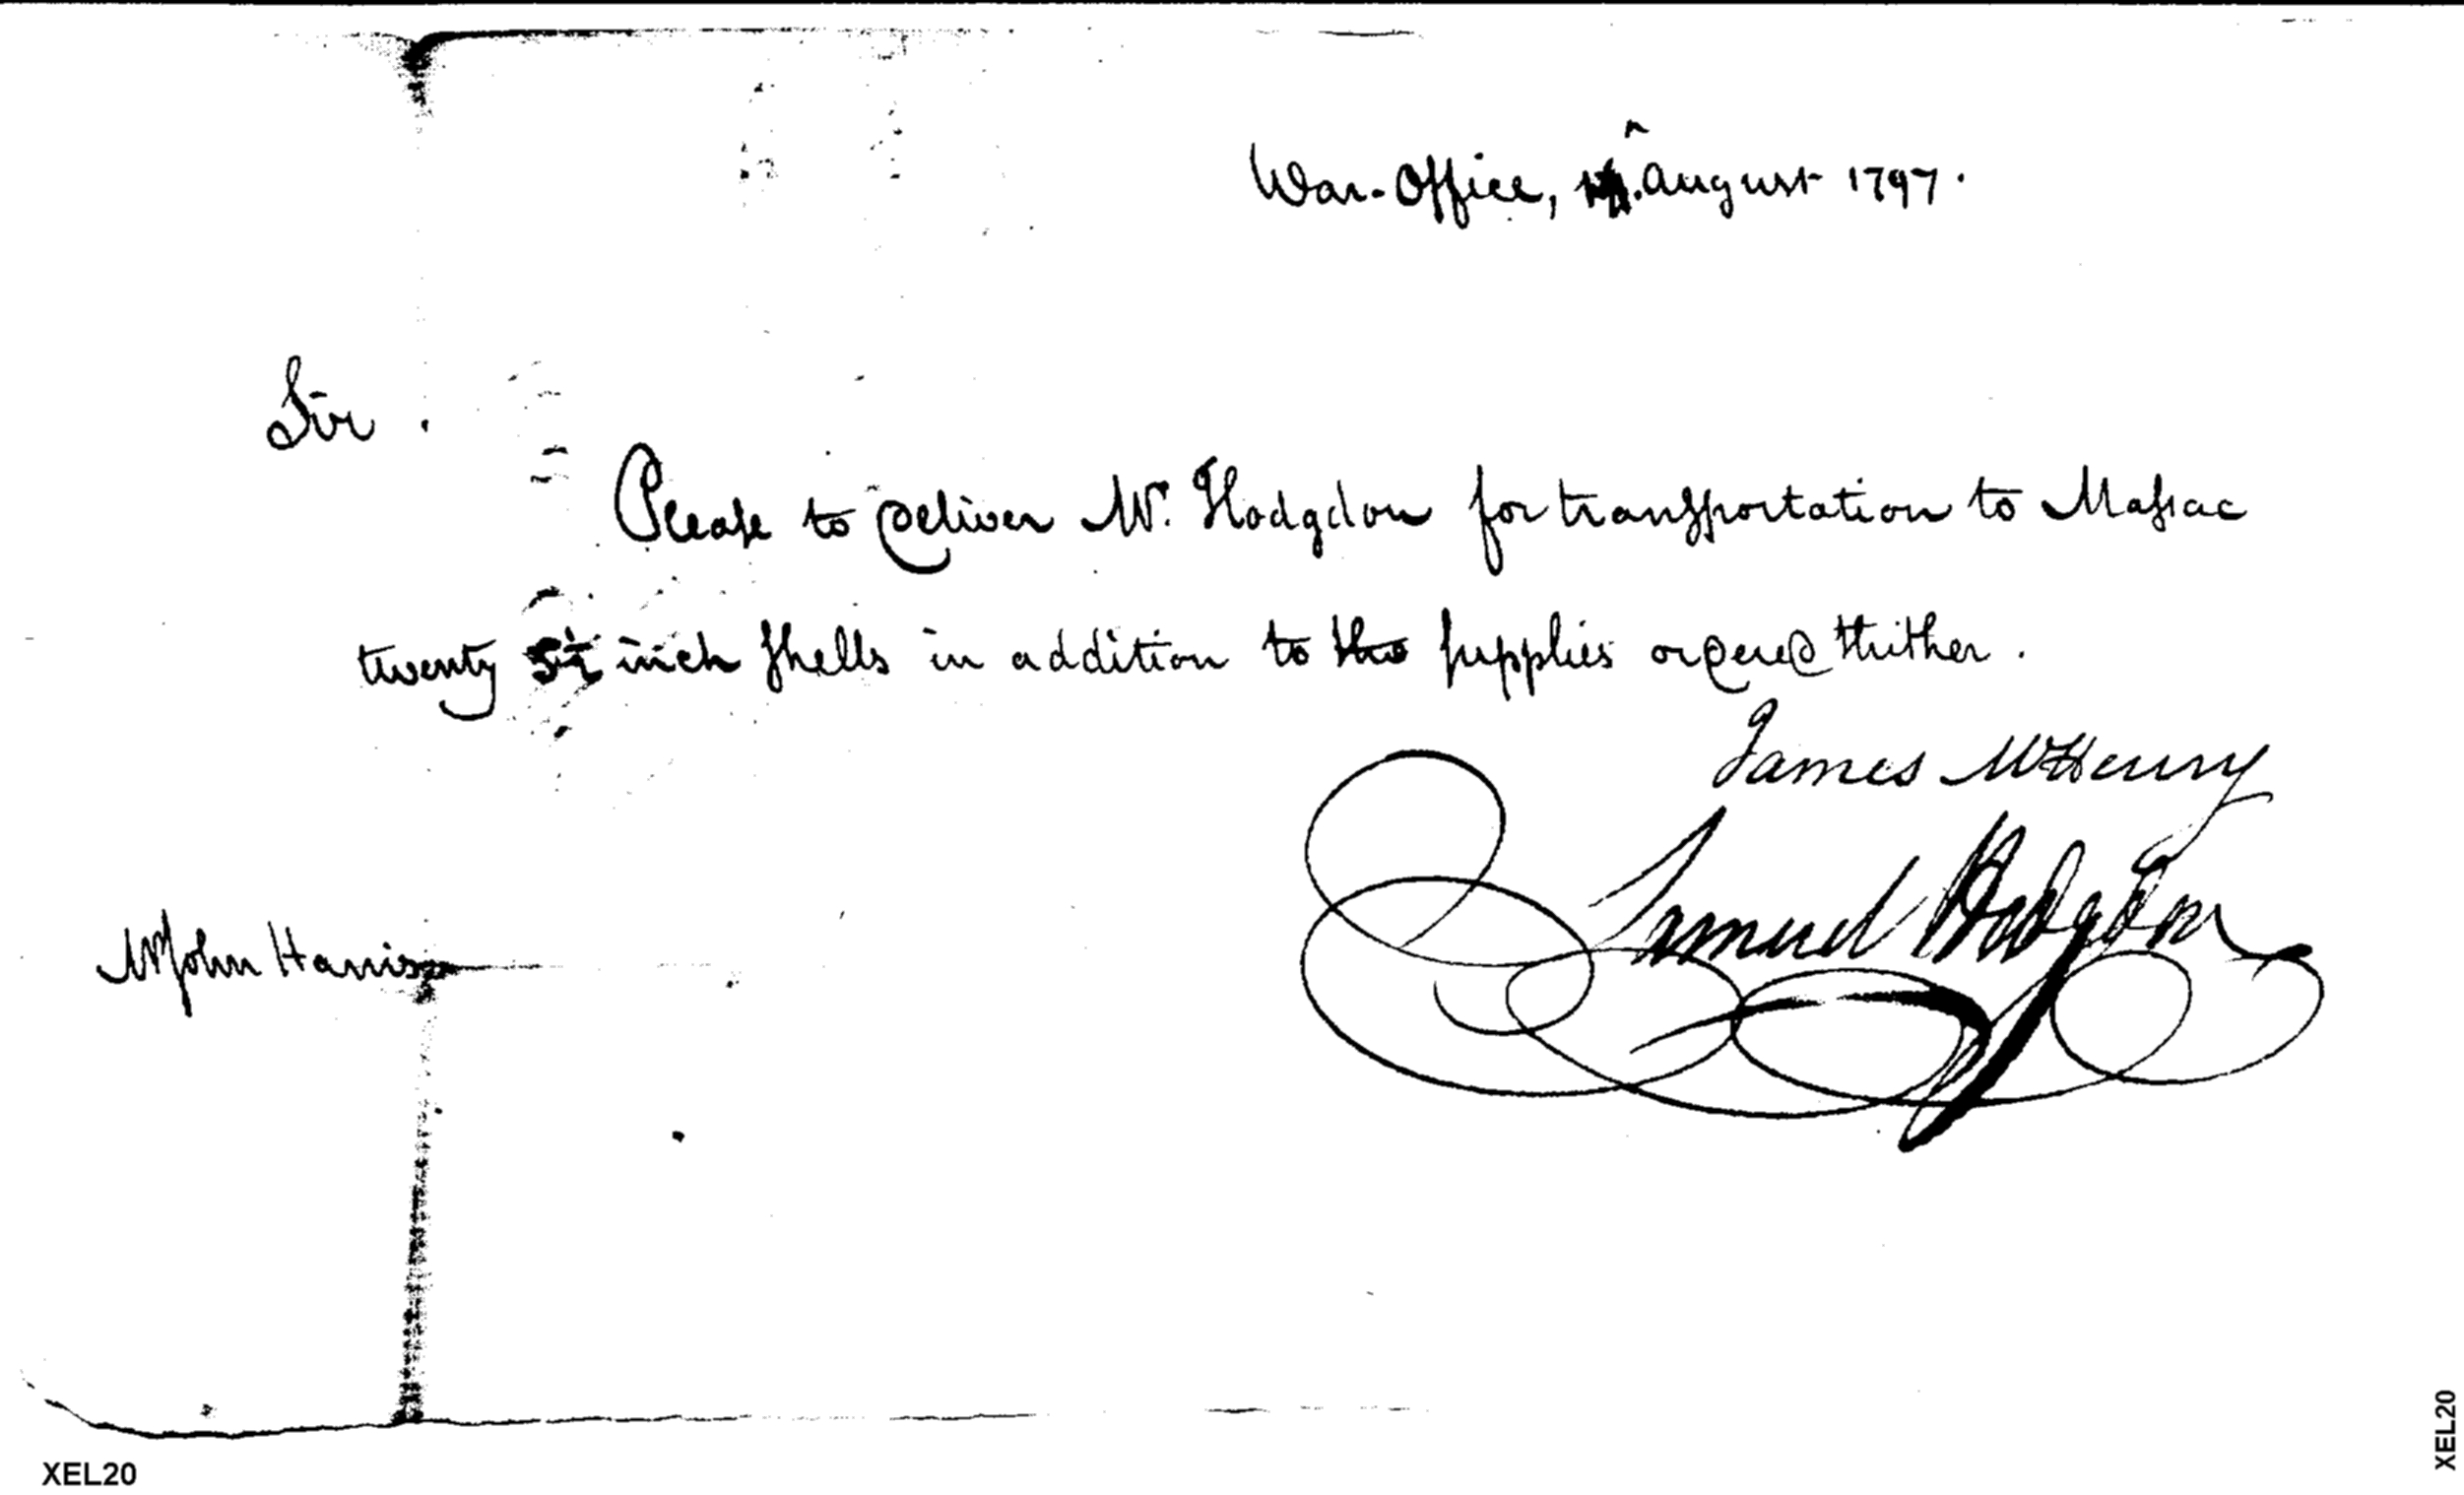 War-Office, August 1797.
Sir
Please to deliver Mr. Hodgdon for transportation to Massac
twenty inch shells in addition to the supplies ordered thither.
James McHenry
Samuel Hodgdon
Mr John Harris
XEL20
XEL20